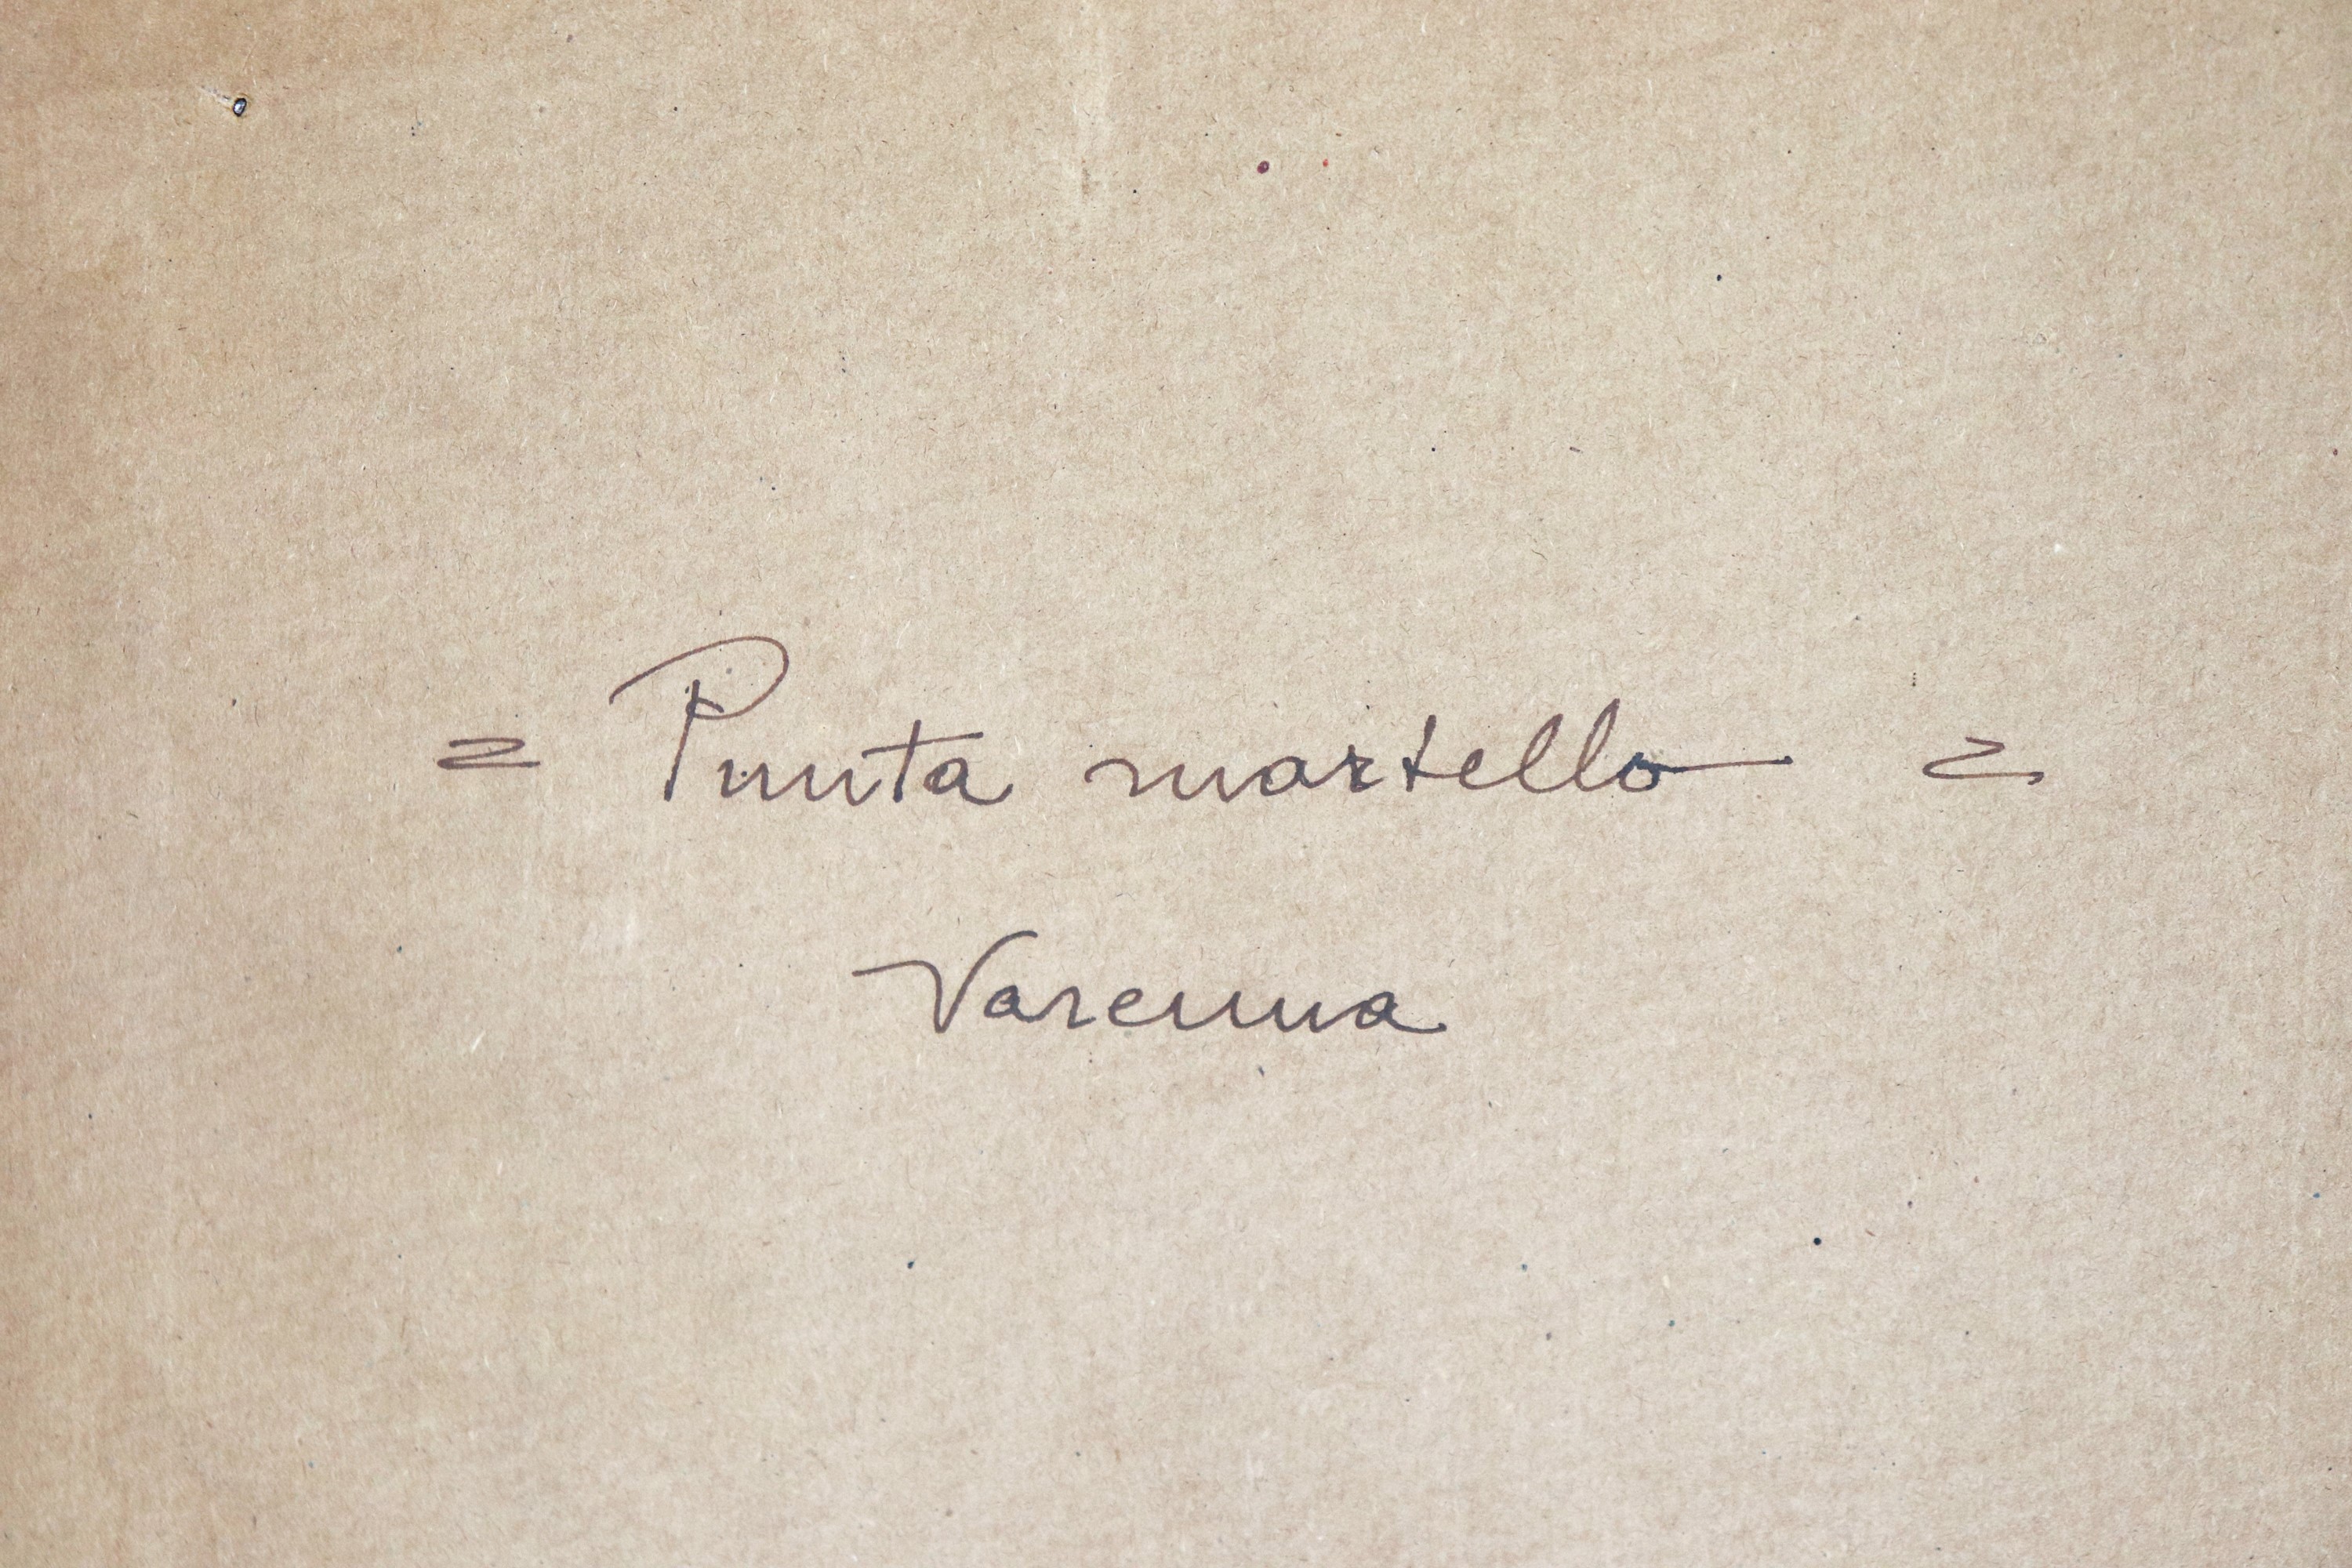 = Punta martello =
Varenna